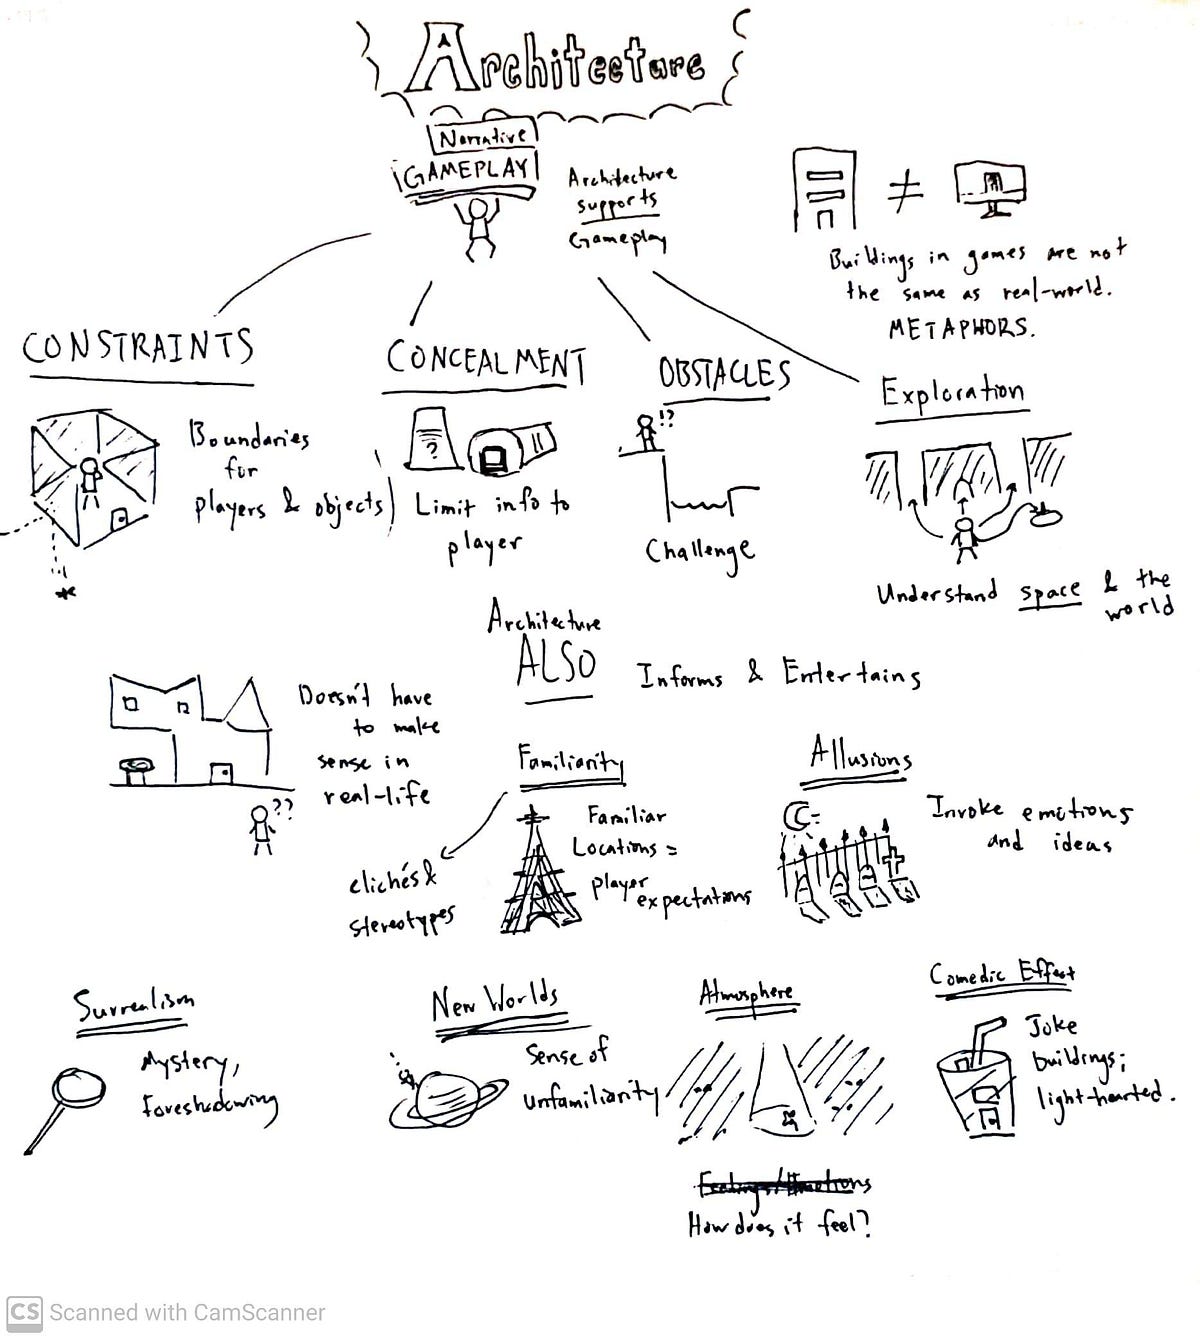 Architecture
Narrative
GAMEPLAY
Architecture
supports
Gameplay
≠
Buildings in games are not
the same as real-world.
METAPHORS.
CONSTRAINTS
Boundaries
for
players & objects
CONCEALMENT
?
Limit info to
player
OBSTACLES
!?
Challenge
Exploration
Understand space & the
world
Architecture
ALSO
Informs & Entertains
Doesn't have
to make
sense in
real-life
??
Familiarity
Familiar
Locations =
player
expectations
clichés &
stereotypes
Allusions
Invoke emotions
and ideas
Surrealism
Mystery,
Foreshadowing
New Worlds
Sense of
unfamiliarity
Atmosphere
Feelings/Emotions
How does it feel?
Comedic Effect
Joke
buildings;
light-hearted.
CS Scanned with CamScanner